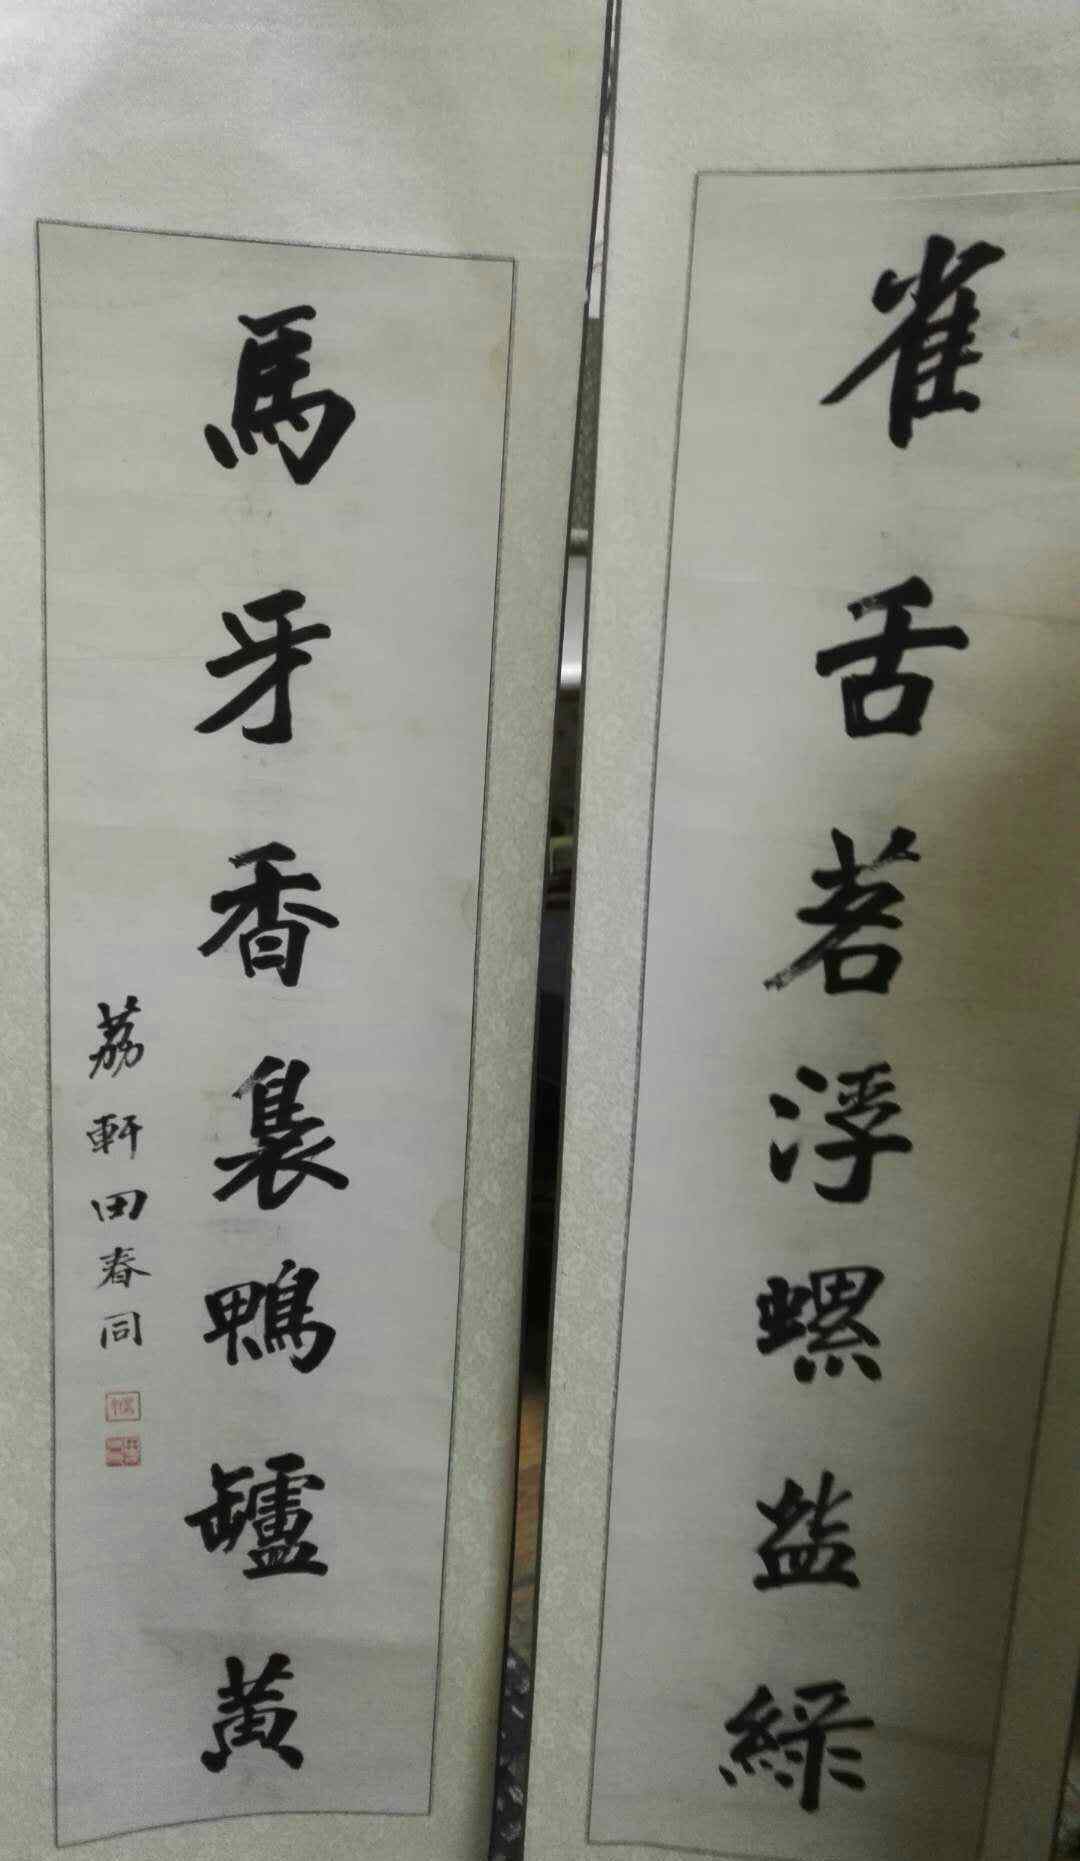 雀舌茗浮螺盐綠
馬牙香裊鴨罏黃
荔軒田春同